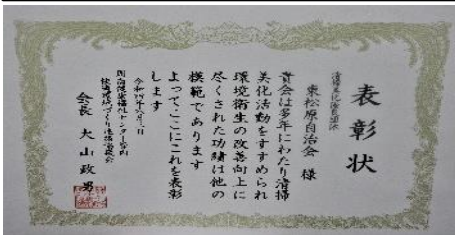 表彰状
清掃美化活動団体
東松原自治会 様
貴会は多年にわたり清掃
美化活動をすすめられ
環境衛生の改善向上に
尽くされた功績は他の
模範であります
よってここにこれを表彰
します
会長 大山政男